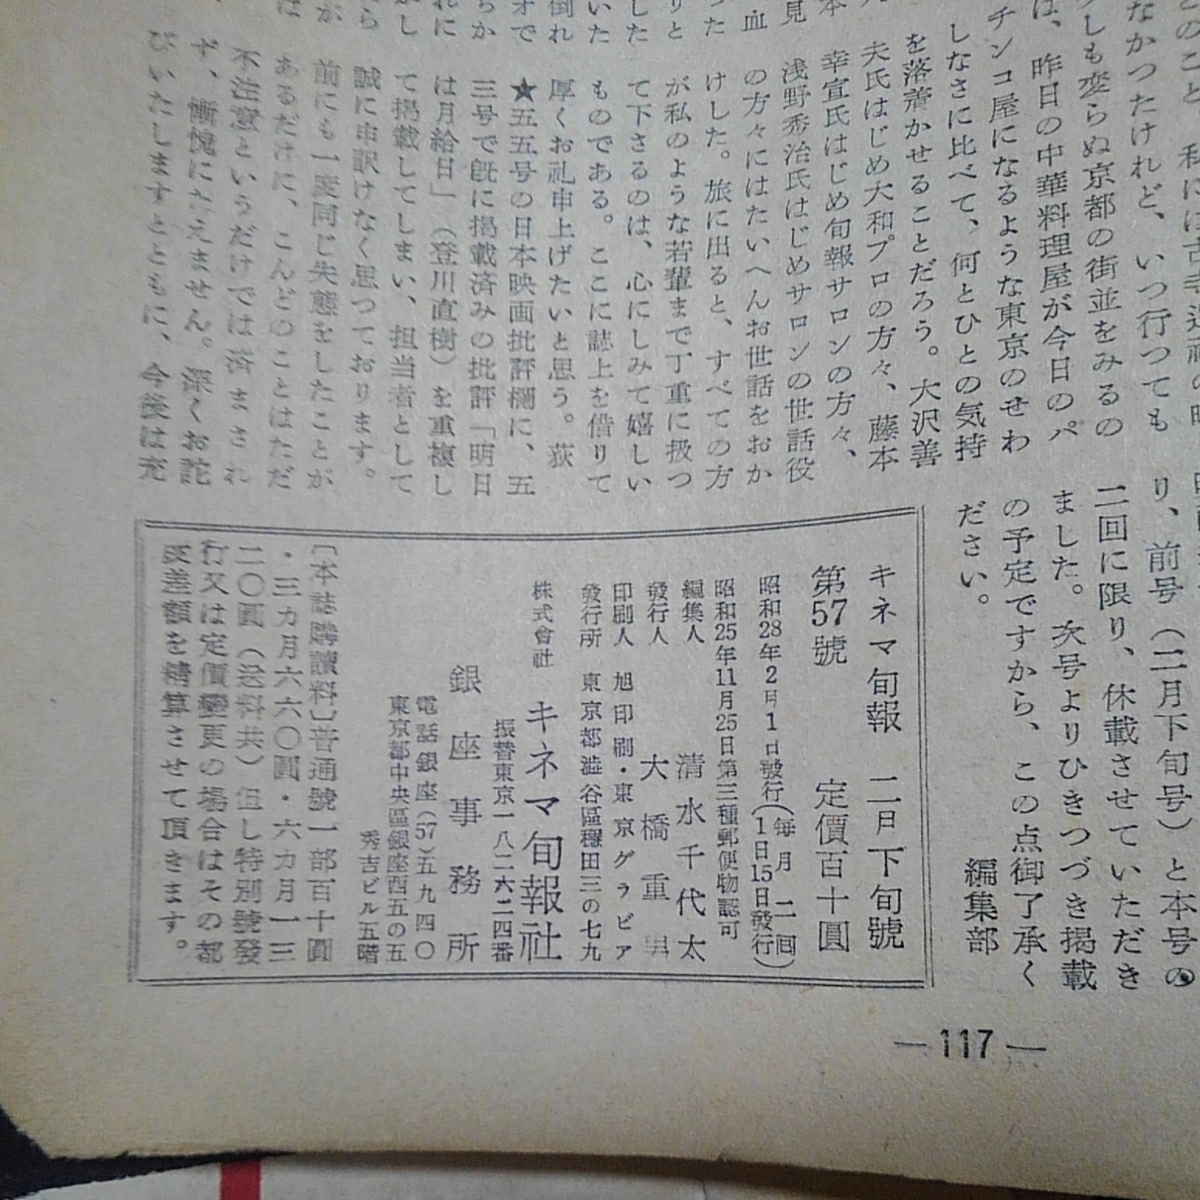 なかつたけれど、いつ行つても
しも変らぬ京都の街並をみるの
は、昨日の中華料理屋が今日のパ
チンコ屋になるような東京のせわ
しなさに比べて、何とひとの気持
を落着かせることだろう。大沢善
夫氏はじめ大和プロの方々、藤本
幸宣氏はじめ旬報サロンの方々、
浅野秀治氏はじめサロンの世話役
の方々にはたいへんお世話をおか
けした。旅に出ると、すべての方
が私のような若輩まで丁重に扱つ
て下さるのは、心にしみて嬉しい
ものである。ここに誌上を借りて
厚くお礼申上げたいと思う。荻
★五五号の日本映画批評欄に、五
三号で既に掲載済みの批評「明日
は月給日」（登川直樹）を重複し
て掲載してしまい、担当者として
誠に申訳けなく思つております。
前にも一度同じ失態をしたことが
あるだけに、こんどのことはただ
不注意というだけでは済まされ
ず、慚愧にたえません。深くお詑
びいたしますとともに、今後は充
り、前号（二月下旬号）と本号の
二回に限り、休載させていただき
ました。次号よりひきつづき掲載
の予定ですから、この点御了承く
ださい。　　　　編集部
キネマ旬報　二月下旬號
第57號　定價百十圓
昭和28年2月1日發行（毎月二回 1日15日發行）
昭和25年11月25日第三種郵便物認可
編集人　清水千代太
發行人　大橋重男
印刷人　旭印刷・東京グラビア
發行所　東京都澁谷區穩田三の七九
株式會社　キネマ旬報社
振替東京一八二六二四番
銀座事務所
電話銀座(57)五九四〇
東京都中央區銀座西五の五
秀吉ビル五階
〔本誌購讀料〕普通號一部百十圓
・三カ月六六〇圓・六カ月一三
二〇圓（送料共）但し特別號發
行又は定價變更の場合はその都
度差額を精算させて頂きます。
— 117 —